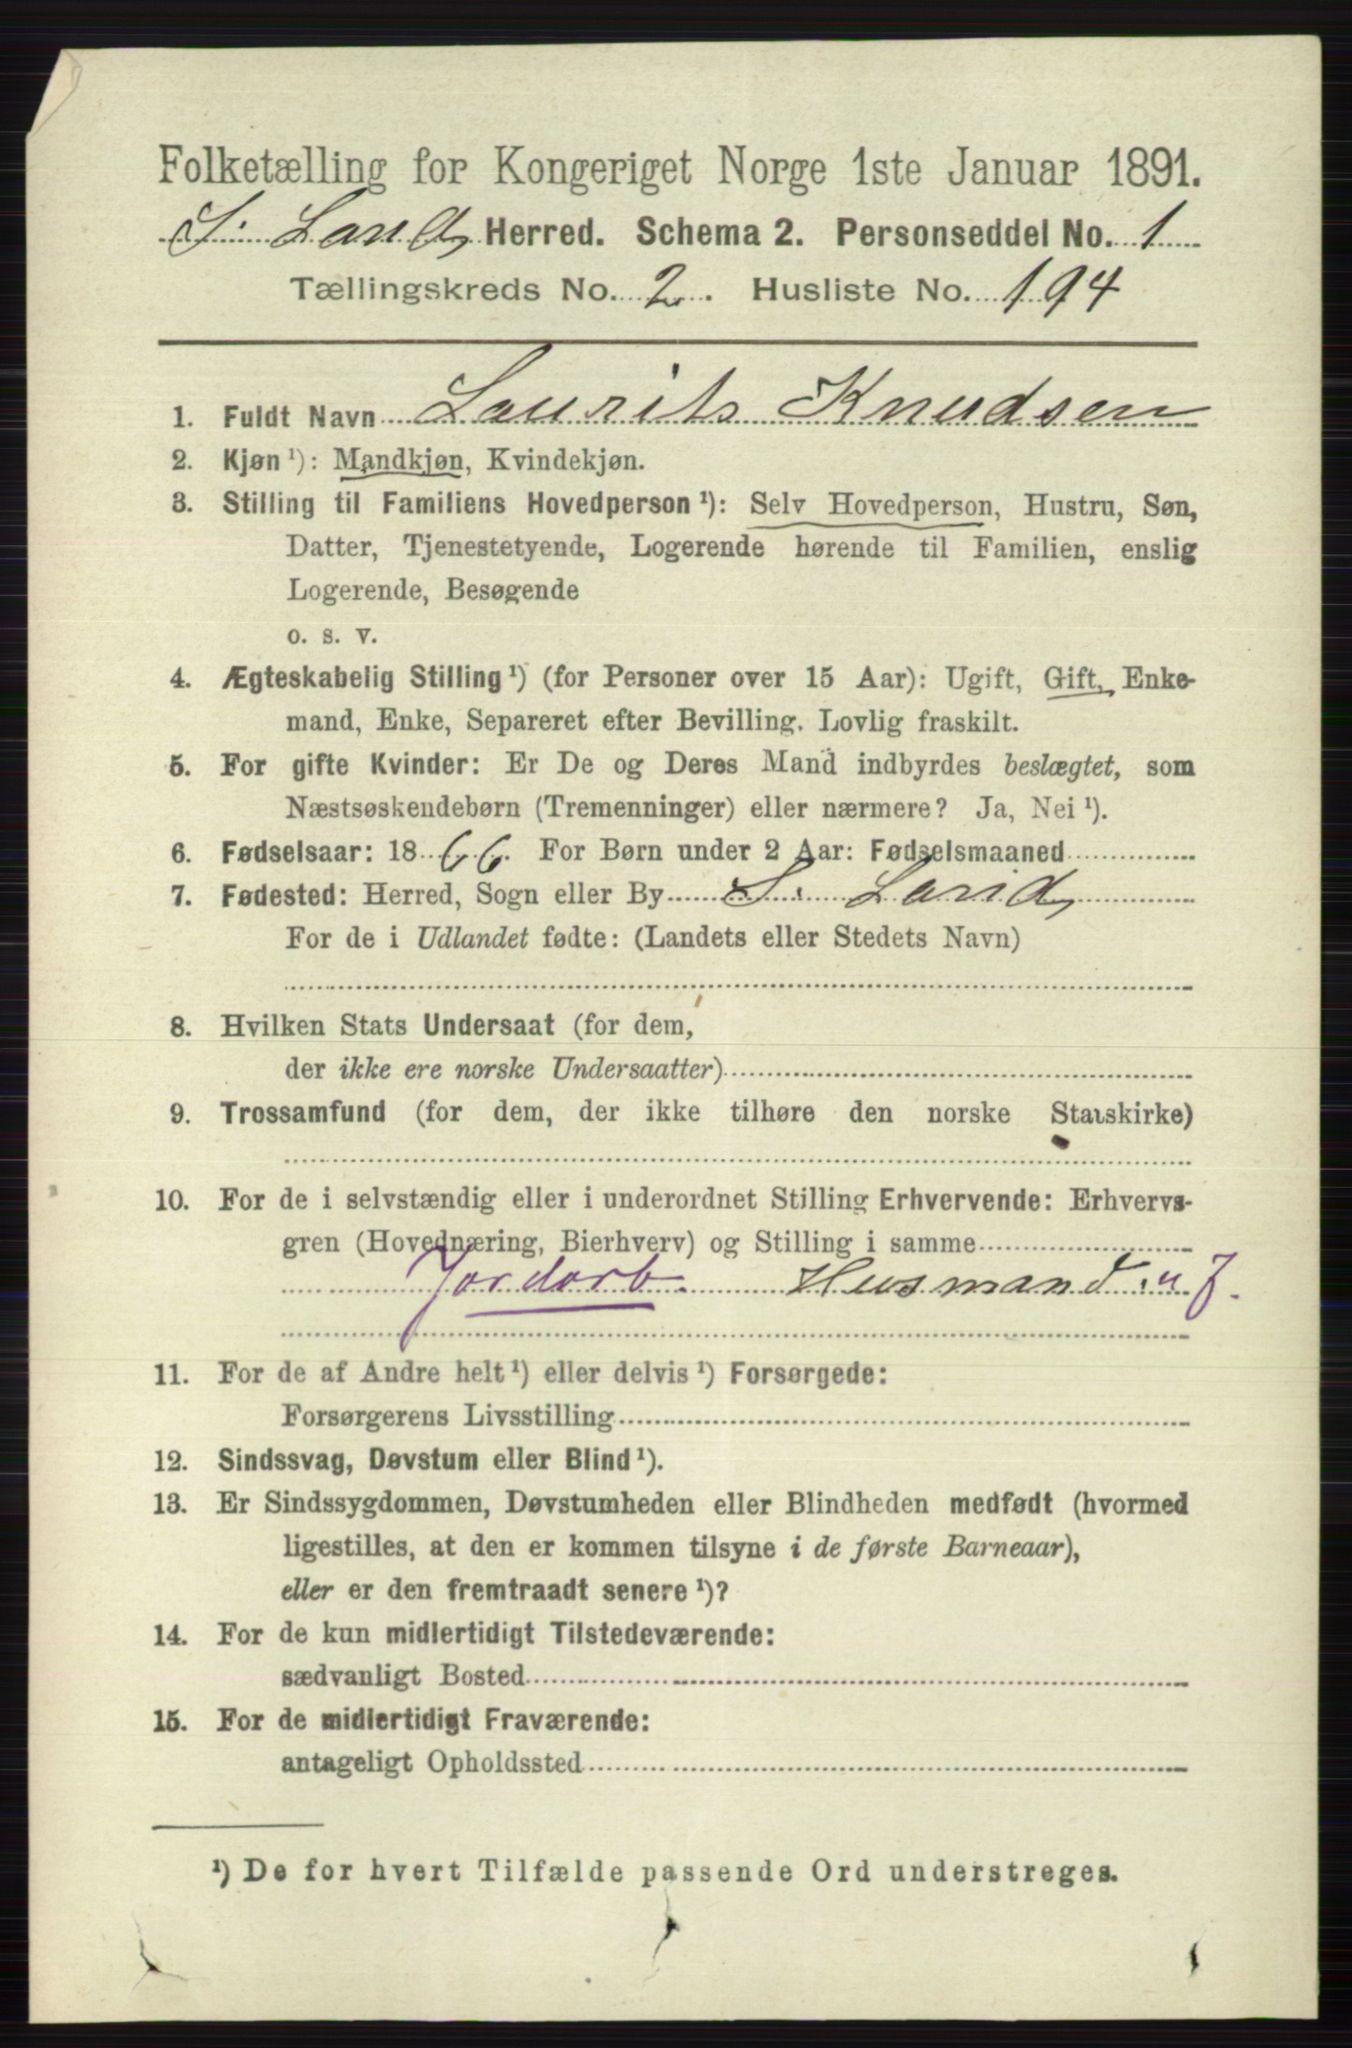 Folketælling for Kongeriget Norge 1ste Januar 1891.
S. Land Herred. Schema 2. Personseddel No. 1
Tællingskreds No. 2. Husliste No. 194
1. Fuldt Navn Laurits Knudsen
2. Kjøn ¹): Mandkjøn, Kvindekjøn.
3. Stilling til Familiens Hovedperson ¹): Selv Hovedperson, Hustru, Søn,
Datter, Tjenestetyende, Logerende hørende til Familien, enslig
Logerende, Besøgende
o. s. v.
4. Ægteskabelig Stilling ¹) (for Personer over 15 Aar): Ugift, Gift, Enke-
mand, Enke, Separeret efter Bevilling. Lovlig fraskilt.
5. For gifte Kvinder: Er De og Deres Mand indbyrdes beslægtet, som
Næstsøskendebørn (Tremenninger) eller nærmere? Ja, Nei ¹).
6. Fødselsaar: 1866. For Børn under 2 Aar: Fødselsmaaned
7. Fødested: Herred, Sogn eller By S. Land
For de i Udlandet fødte: (Landets eller Stedets Navn)
8. Hvilken Stats Undersaat (for dem,
der ikke ere norske Undersaatter)
9. Trossamfund (for dem, der ikke tilhøre den norske Statskirke)
10. For de i selvstændig eller i underordnet Stilling Erhvervende: Erhvervs-
gren (Hovednæring, Bierhverv) og Stilling i samme
Jordarb. Husmand u J.
11. For de af Andre helt ¹) eller delvis ¹) Forsørgede:
Forsørgerens Livsstilling
12. Sindssvag, Døvstum eller Blind ¹).
13. Er Sindssygdommen, Døvstumheden eller Blindheden medfødt (hvormed
ligestilles, at den er kommen tilsyne i de første Barneaar),
eller er den fremtraadt senere ¹)?
14. For de kun midlertidigt Tilstedeværende:
sædvanligt Bosted
15. For de midlertidigt Fraværende:
antageligt Opholdssted
¹) De for hvert Tilfælde passende Ord understreges.